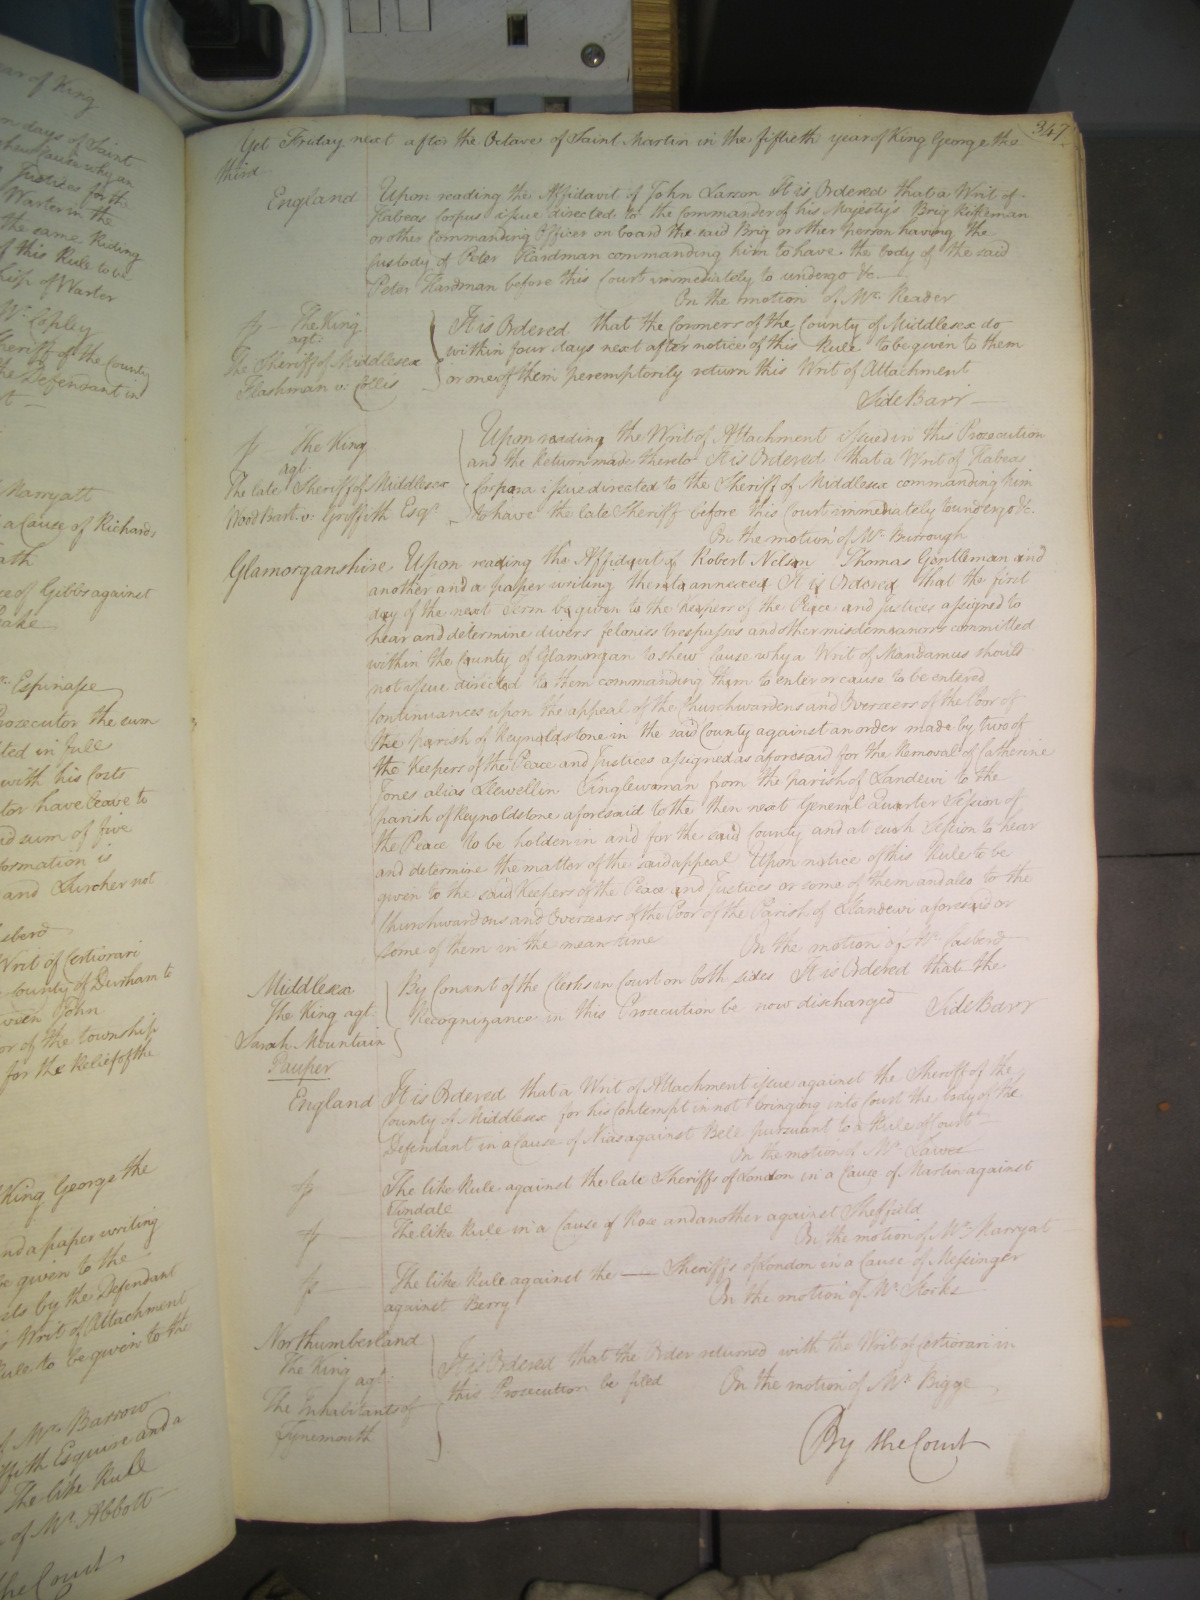 347
Yet Friday next after the Octave of Saint Martin in the fiftieth year of King George the
third
England Upon reading the Affidavit of John Larson It is Ordered that a Writ of
Habeas Corpus issue directed to the Commander of his Majesty's Brig
or other Commanding Officer on board the said Brig or other person having the
Custody of Peter Hardman commanding him to have the body of the said
Peter Hardman before this Court immediately to undergo &c.
On the motion of Mr. Reader
The King
agt.
The Sheriff of Middlesex
Flashman v. Collis
It is Ordered that the Coroners of the County of Middlesex do
within four days next after notice of this Rule to be given to them
or one of them peremptorily return this Writ of Attachment
Side Barr
The King
agt.
The late Sheriff of Middlesex
Wood Bart. v. Griffith Esqr.
Upon reading the Writ of Attachment issued in this Prosecution
and the Return made thereto It is Ordered that a Writ of Habeas
Corpora issue directed to the Sheriff of Middlesex commanding him
to have the late Sheriff before this Court immediately to undergo &c.
On the motion of Mr. Burrough
Glamorganshire Upon reading the Affidavit of Robert Nelson Thomas Gentleman and
another and a paper writing thereto annexed It is Ordered that the first
day of the next Term be given to the Keepers of the Peace and Justices assigned to
hear and determine divers felonies trespasses and other misdemeanors committed
within the County of Glamorgan to shew Cause why a Writ of Mandamus should
not issue directed to them commanding them to enter or cause to be entered
Continuances upon the appeal of the Churchwardens and Overseers of the Poor of
the parish of Reynoldstone in the said County against an order made by two of
the Keepers of the Peace and Justices assigned as aforesaid for the Removal of Catherine
Jones alias Llewellin Singlewoman from the parish of Llandewi to the
parish of Reynoldstone aforesaid to the then next General Quarter Session of
the Peace to be holden in and for the said County and at such Session to hear
and determine the matter of the said appeal Upon notice of this Rule to be
given to the said Keepers of the Peace and Justices or some of them and also to the
Churchwardens and Overseers of the Poor of the Parish of Llandewi aforesaid or
some of them in the mean time On the motion of Mr. Casberd
Middlesex
The King agt.
Sarah Mountain
Pauper
By Consent of the Clerks in Court on both sides It is Ordered that the
Recognizance in this Prosecution be now discharged Side Barr
England It is Ordered that a Writ of Attachment issue against the Sheriff of the
County of Middlesex for his Contempt in not bringing into Court the body of the
Defendant in a Cause of Nias against Bell pursuant to a Rule of Court
On the motion of Mr. Lawes
The like Rule against the late Sheriffs of London in a Cause of Martin against
Tindale
The like Rule in a Cause of Rose and another against Sheffield
On the motion of Mr. Marryat
The like Rule against the — Sheriffs of London in a Cause of Messinger
against Berry On the motion of Mr. Storks
Northumberland
The King
agt.
The Inhabitants of
Tynemouth
It is Ordered that the Order returned with the Writ of Certiorari in
this Prosecution be filed On the motion of Mr. Bigge
By the Court
year of King
days of Saint
shew Cause why an
Justices for the
Warter in the
the same Riding
of this Rule to be
of Warter
Mr. Copley
Sheriff of the County
the Defendant in
Marryatt
a Cause of Richards
of Gibbs against
Lake
Mr. Espinasse
Prosecutor the sum
in full
with his Costs
have leave to
sum of five
Information is
and Lurcher not
Casberd
Writ of Certiorari
County of Durham to
John
of the township
for the Relief of the
King George the
and a paper writing
be given to the
by the Defendant
Writ of Attachment
Rule to be given to the
Mr. Barrow
Griffith Esquire and a
The like Rule
of Mr. Abbott
the Court